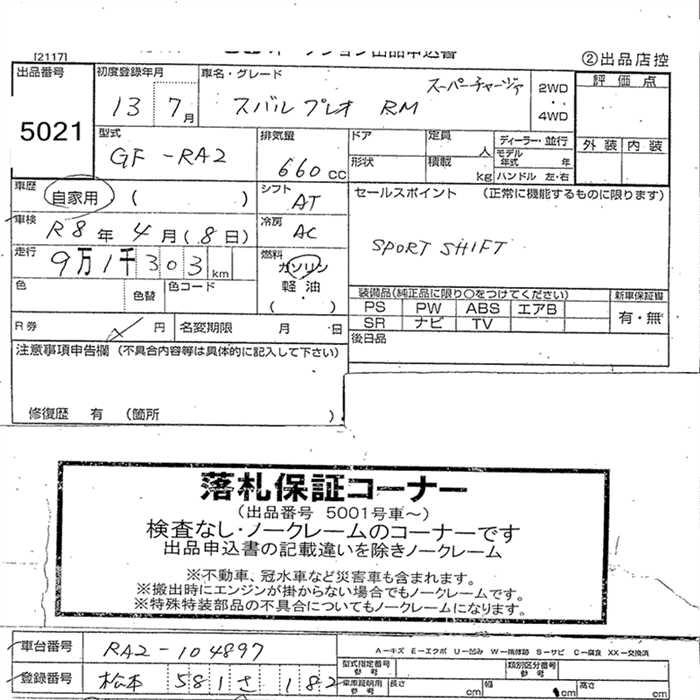 [2117]
オークション出品申込書
②出品店控
出品番号
5021
初度登録年月
13 7月
車名・グレード
スーパーチャージァ
スバル プレオ RM
2WD
・・
4WD
評価点
型式
GF-RA2
排気量
660cc
ドア
定員
人
形状
積載
kg
ディーラー・並行
モデル年式 年
ハンドル 左・右
外装 内装
車歴
自家用 ( )
シフト
AT
セールスポイント (正常に機能するものに限ります)
SPORT SHIFT
車検
R8年 4月(8日)
冷房
AC
走行
9万1千303km
燃料
ガソリン
軽油
( )
色
色替
色コード
装備品(純正品に限り○をつけてください)
新車保証書
PS PW ABS エアB
SR ナビ TV
有・無
R券
円
名変期限 月 日
後日品
注意事項申告欄 (不具合内容等は具体的に記入して下さい)
修復歴 有 (箇所 )
落札保証コーナー
(出品番号 5001号車~)
検査なし・ノークレームのコーナーです
出品申込書の記載違いを除きノークレーム
※不動車、冠水車など災害車も含まれます。
※搬出時にエンジンが掛からない場合でもノークレームです。
※特殊特装部品の不具合についてもノークレームになります。
車台番号
RA2-104897
A-キズ E-エクボ U-凹み W-補修跡 S-サビ C-腐食 XX-交換済
型式指定番号
参考
類別区分番号
参考
登録番号
松本 581 さ 182
車庫証明用
参考
長さ cm
幅 cm
高さ cm